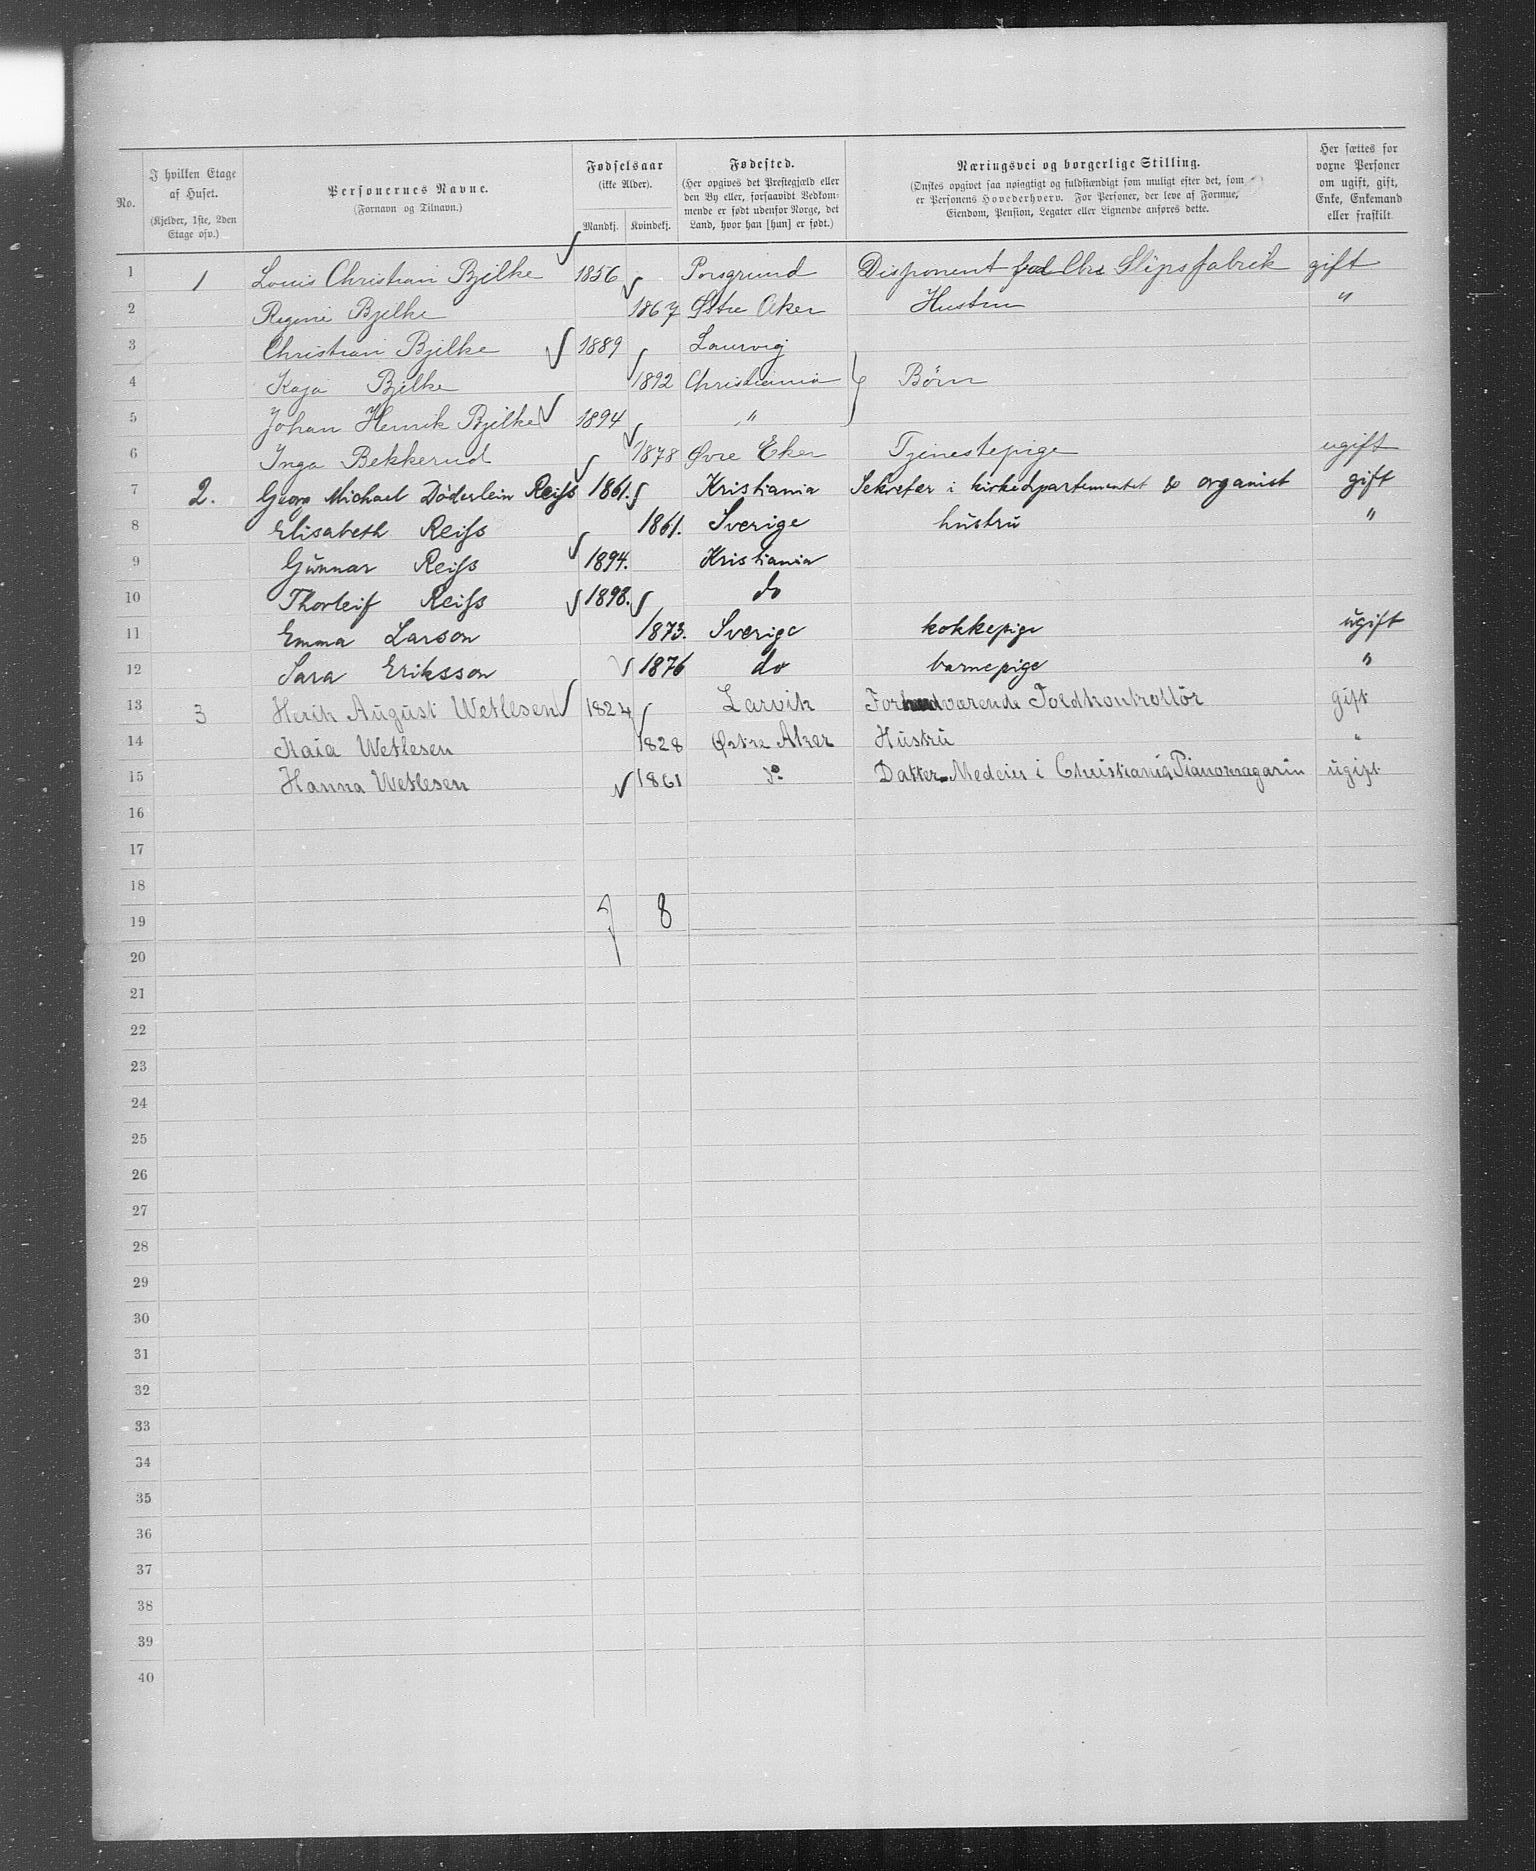 No. I hvilken Etage af Huset. (Kjelder, 1ste, 2den Etage osv.) Personernes Navne. (Fornavn og Tilnavn.) Fødselsaar (ikke Alder). Mandkj. Kvindekj. Fødested. (Her opgives det Prestegjæld eller den By eller, forsaavidt Vedkommende er født udenfor Norge, det Land, hvor han [hun] er født.) Næringsvei og borgerlige Stilling. (Ønskes opgivet saa nøiagtigt og fuldstændigt som muligt efter det, som er Personens Hovederhverv. For Personer, der leve af Formue, Eiendom, Pension, Legater eller Lignende anføres dette. Her sættes for voxne Personer om ugift, gift, Enke, Enkemand eller fraskilt.
1 1 Louis Christian Bjelke 1856 Porsgrund Disponent Slipsfabrik gift
2 Regine Bjelke 1867 Østre Aker Hustru "
3 Christian Bjelke 1889 Laurvig
4 Kaja Bjelke 1892 Christiania } Børn
5 Johan Henrik Bjelke 1894 "
6 Inga Bekkerud 1878 Øvre Eker Tjenestepige ugift
7 2. Georg Michael Døderlein Reiss 1861. Kristiania Sekretær i kirkedepartementet & organist gift
8 Elisabeth Reiss 1861. Sverige hustru "
9 Gunnar Reiss 1894. Kristiania
10 Thorleif Reiss 1898. do
11 Emma Larson 1873. Sverige kokkepige ugift
12 Sara Eriksson 1876 do barnepige "
13 3 Herik August Wetlesen 1824 Larvik Forhenværende Toldkontrollør gift
14 Maia Wetlesen 1828 Østre Aker Hustru "
15 Hanna Wetlesen 1861 do Datter. Medeier i Christiania Pianomagasin ugift
16
17
18
19 7 8
20
21
22
23
24
25
26
27
28
29
30
31
32
33
34
35
36
37
38
39
40